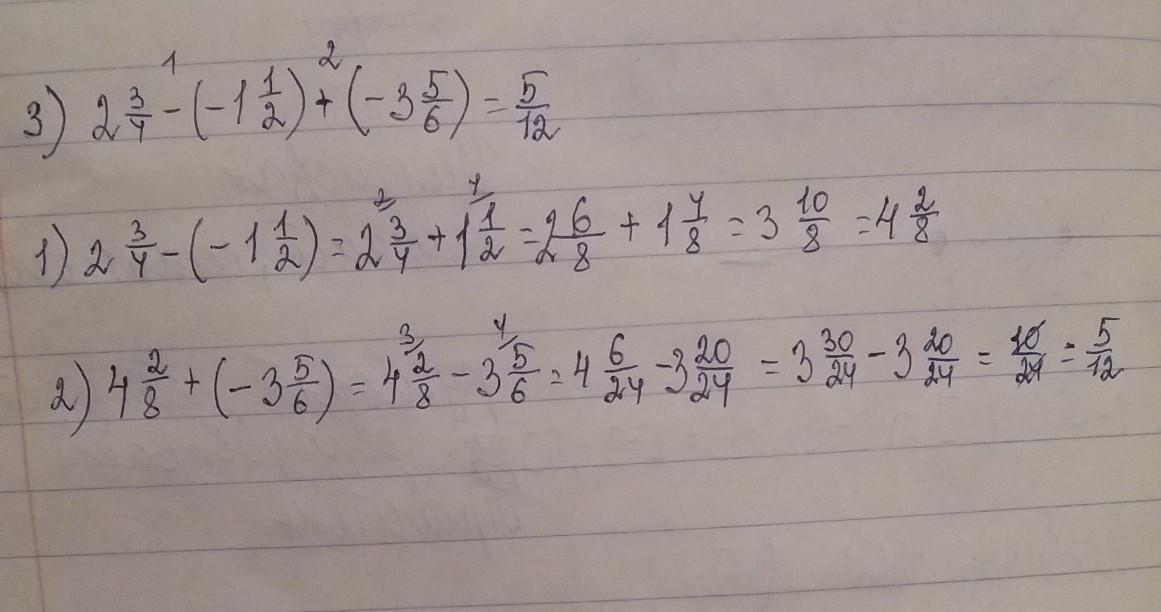 3) 2 3/4 - (-1 1/2) + (-3 5/6) = 5/12
1) 2 3/4 - (-1 1/2) = 2 3/4 + 1 1/2 = 2 6/8 + 1 4/8 = 3 10/8 = 4 2/8
2) 4 2/8 + (-3 5/6) = 4 2/8 - 3 5/6 = 4 6/24 - 3 20/24 = 3 30/24 - 3 20/24 = 10/24 = 5/12